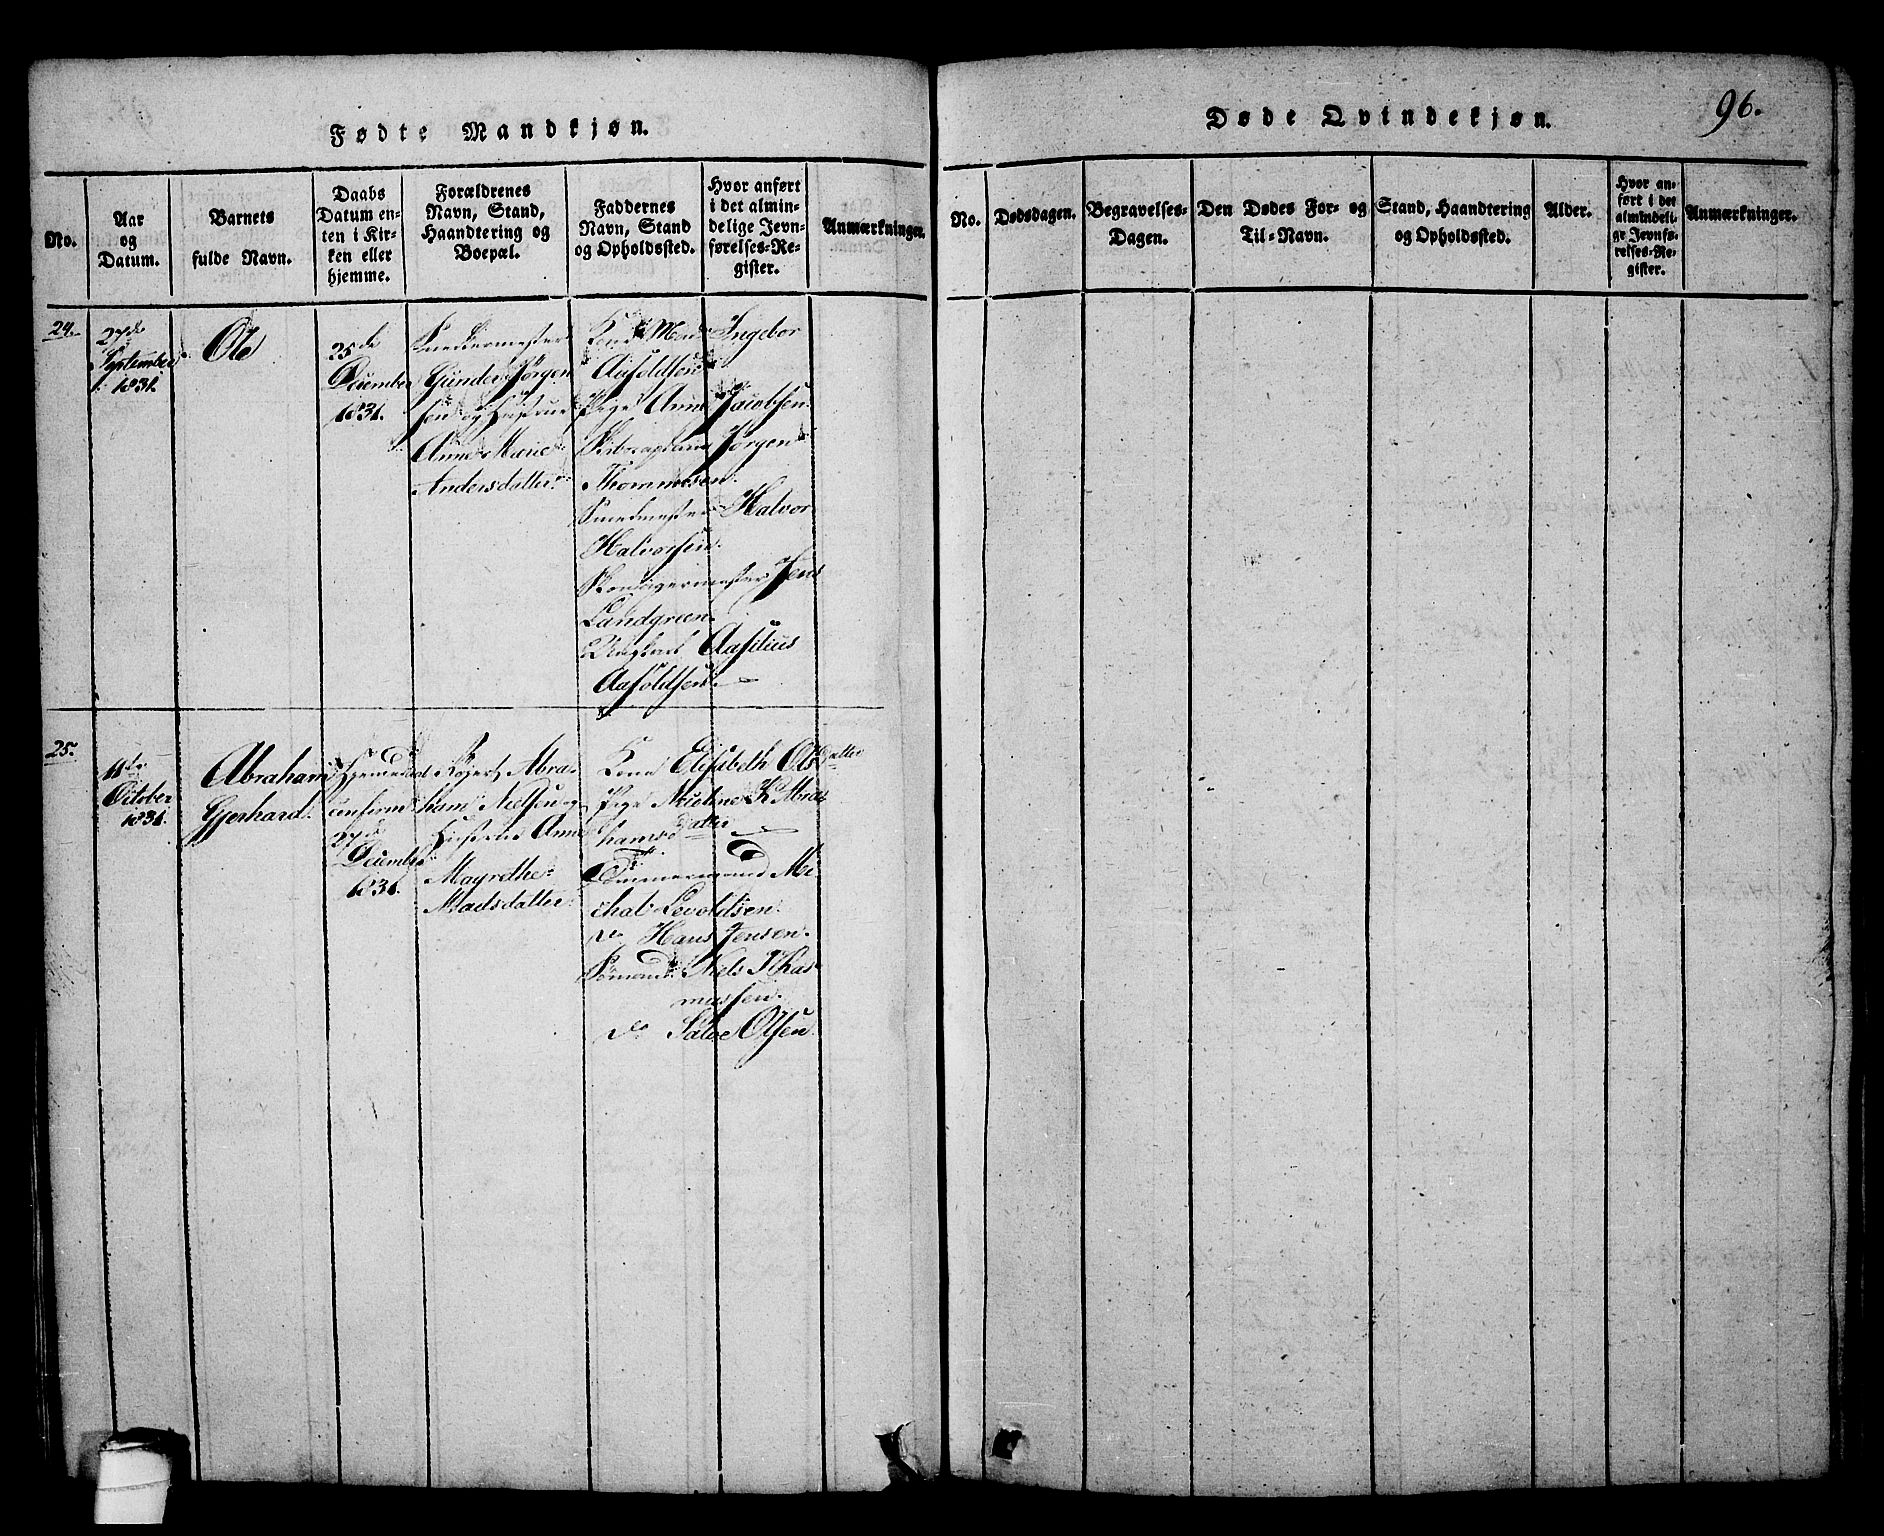 Fødte Mandkjøn.
No.
Aar
og
Datum.
Barnets
fulde Navn.
Daabs
Datum en-
ten i Kir-
ken eller
hjemme.
Forældrenes
Navn, Stand,
Haandtering og
Boepæl.
Faddernes
Navn, Stand
og Opholdssted.
Hvor anført
i det almin-
delige Jevn-
førelses-Re-
gister.
Anmærkninger.
24.
27de
September
1831.
Ole
25de
December
1831.
Snedkermester
Gunder Jørgen
sen og Hustrue
Anne Marie
Andersdatter.
Kone Ingebor
Aasoldsen
Pige Anne Jacobsen.
Jørgen
Thommesen.
Smedmester Halvor
Halvorsen.
Jens
Landgreen.
Ungkarl Aasilius
Aasoldsen.
25.
11te
October
1831.
Abraham
Gjerhard.
Hjemmedøbt
confirm.
27de
December
1831.
Abra-
ham Nielsen og
Hustrue Anne
Magrethe
Madsdatter.
Kone Elisabeth Olsdatter
Pige K. Abra-
hamsdatter
Tømmermand Mi-
chal Levoldsen.
do Hans Jensen.
Sømand Niels Ras-
mussen.
do Salve Olsen.
Døde Qvindekjøn.
96.
No.
Dødsdagen.
Begravelses-
Dagen.
Den Dødes For- og
Til-Navn.
Stand, Haandtering
og Opholdssted.
Alder.
Hvor an-
ført i det
almindeli-
ge Jevnfø-
relses-Re-
gister.
Anmærkninger.